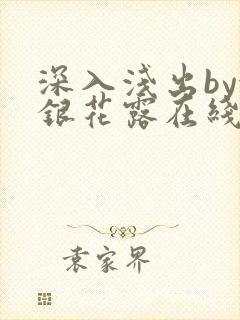 深入浅出by
銀花露在綫
袁家界